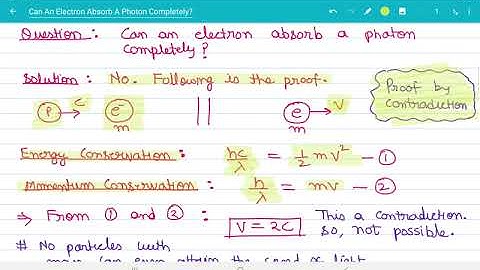 Can An Electron Absorb A Photon Completely?
Question: Can an electron absorb a photon
completely?
Solution: No. Following is the proof.
Proof by
contradiction
P C e⁻ || e V
m m
Energy Conservation: hc/λ = 1/2 mv² — ①
Momentum Conservation: h/λ = mv — ②
⇒ From ① and ②: V = 2C This a contradiction.
So, not possible.
# No particles with
mass can even attain the speed of light